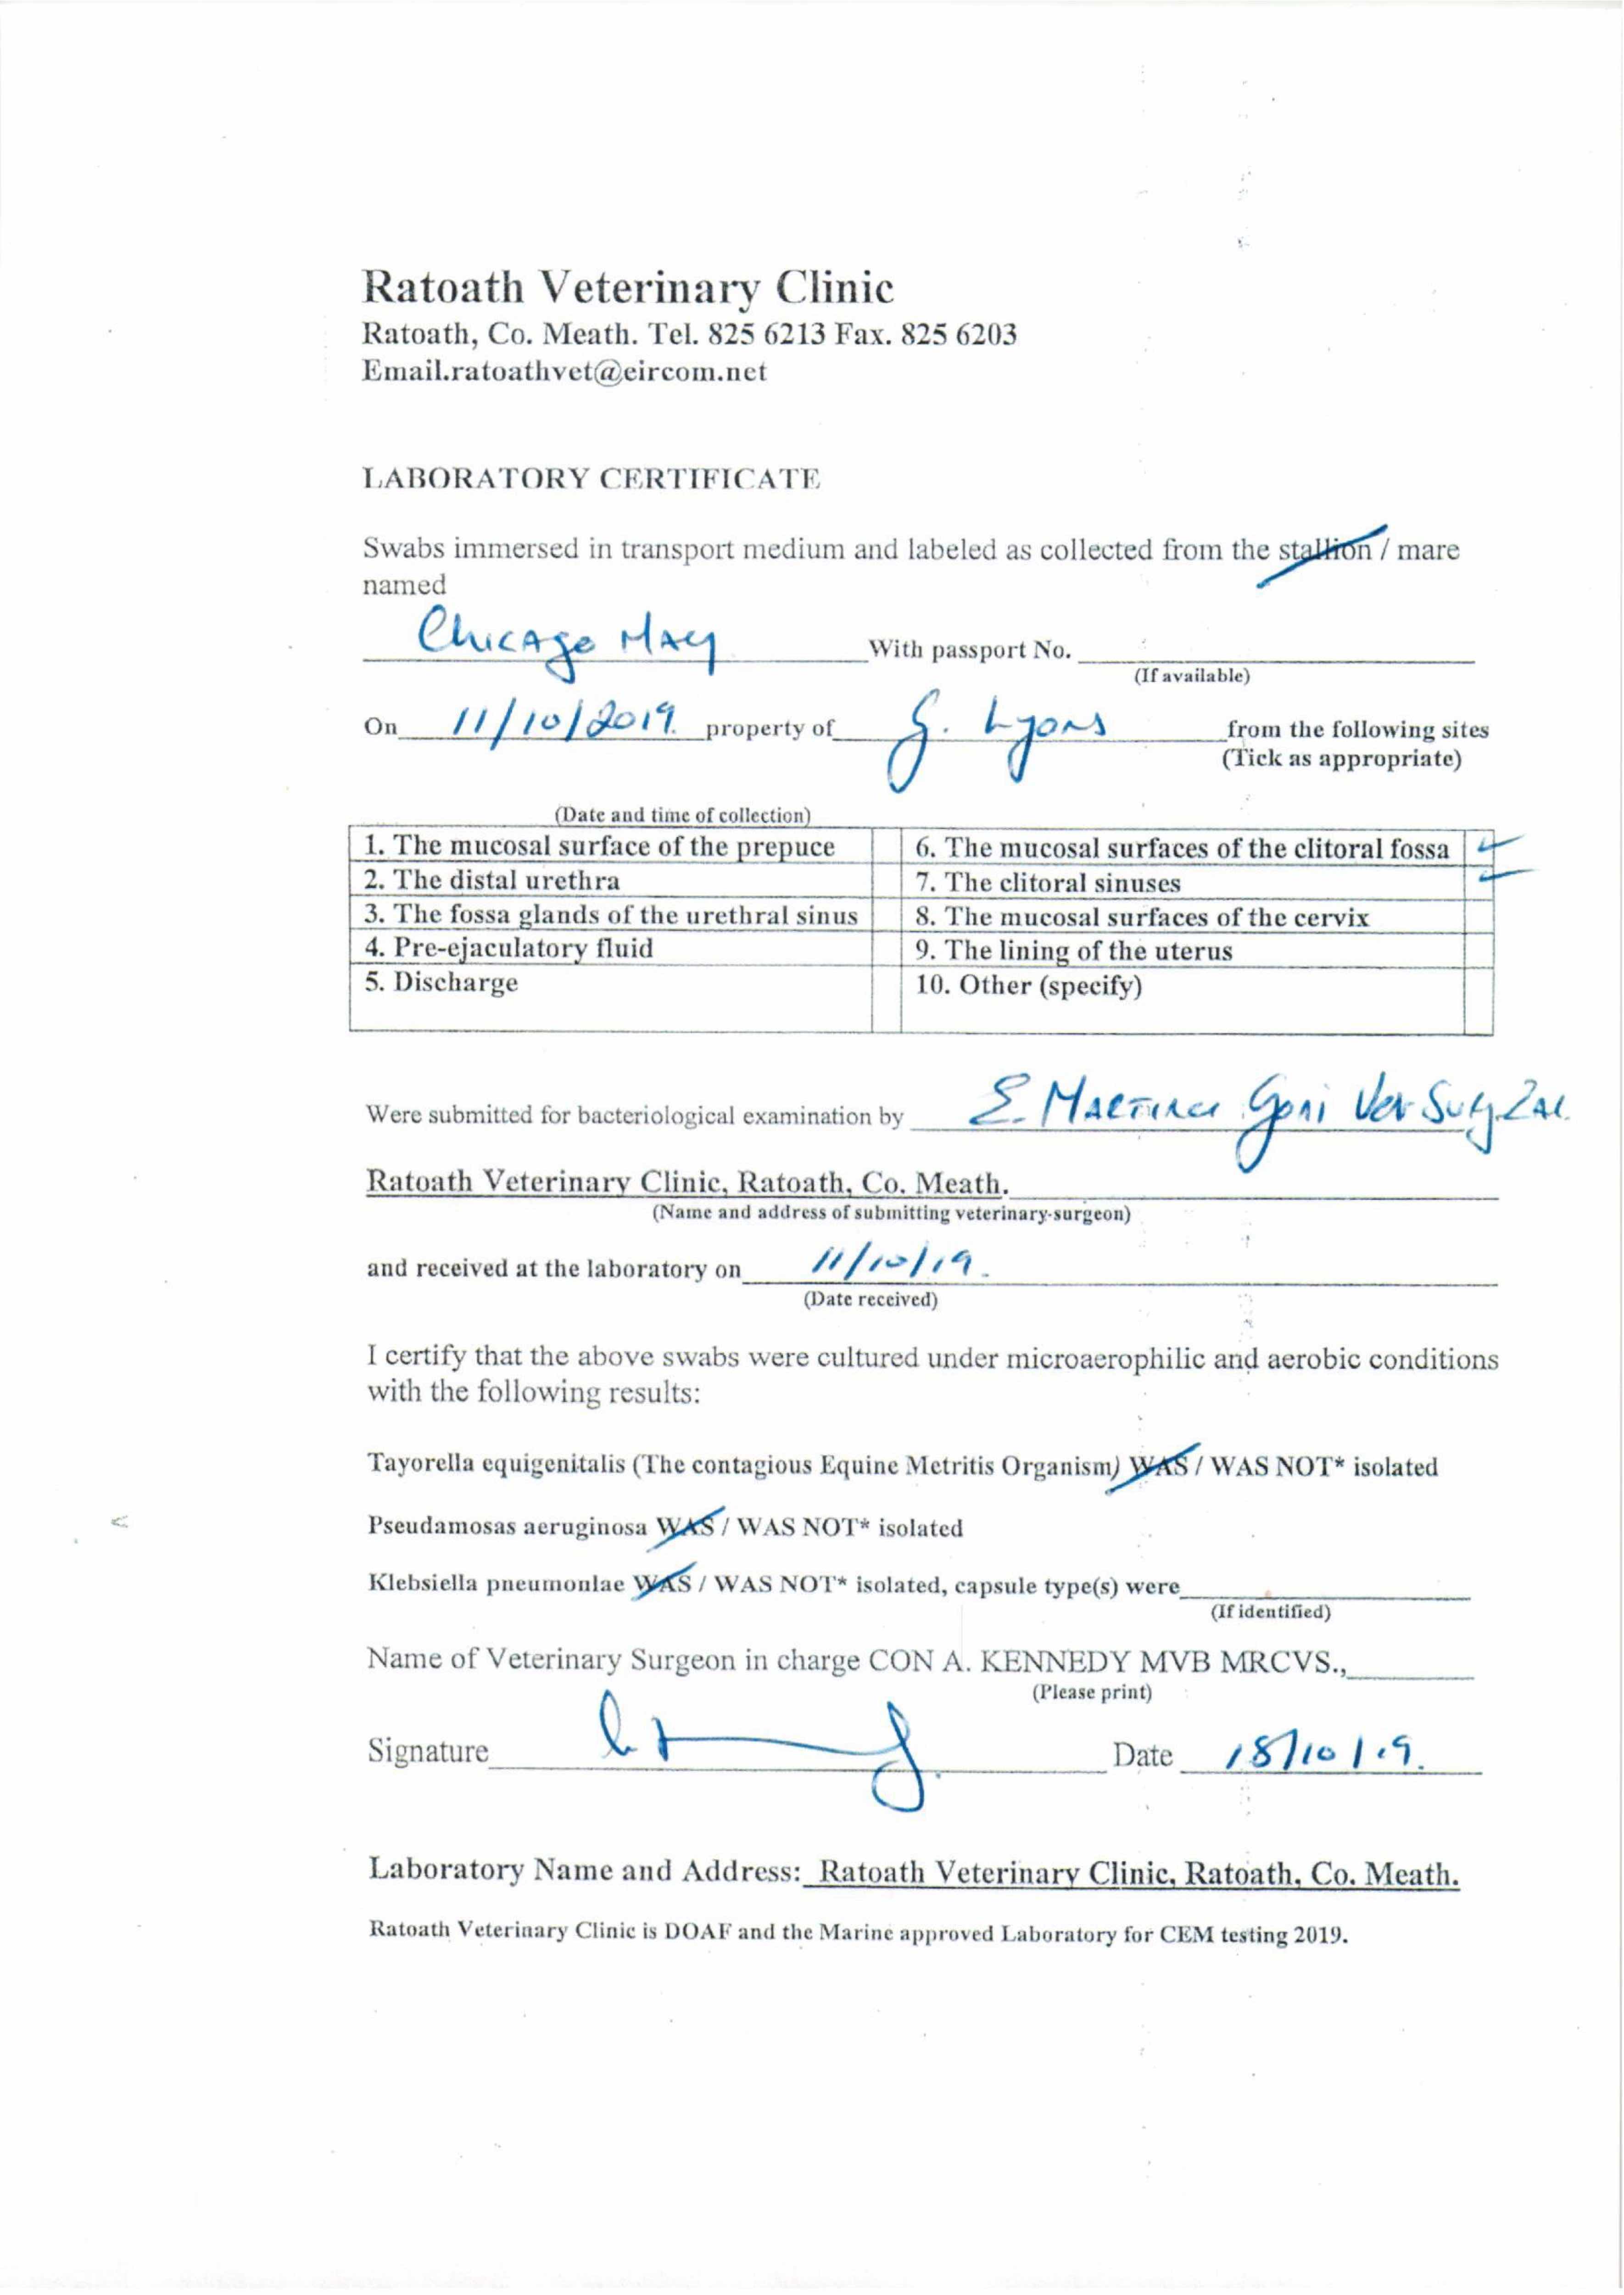 Ratoath Veterinary Clinic
Ratoath, Co. Meath. Tel. 825 6213 Fax. 825 6203
Email.ratoathvet@eircom.net
LABORATORY CERTIFICATE
Swabs immersed in transport medium and labeled as collected from the stallion / mare
named
Chicago May With passport No.
(If available)
On 11/10/2019. property of G. Lyons from the following sites
(Tick as appropriate)
(Date and time of collection)
1. The mucosal surface of the prepuce 6. The mucosal surfaces of the clitoral fossa ✓
2. The distal urethra 7. The clitoral sinuses ✓
3. The fossa glands of the urethral sinus 8. The mucosal surfaces of the cervix
4. Pre-ejaculatory fluid 9. The lining of the uterus
5. Discharge 10. Other (specify)
Were submitted for bacteriological examination by E. Goni
Ratoath Veterinary Clinic, Ratoath, Co. Meath.
(Name and address of submitting veterinary-surgeon)
and received at the laboratory on 11/10/19.
(Date received)
I certify that the above swabs were cultured under microaerophilic and aerobic conditions
with the following results:
Tayorella equigenitalis (The contagious Equine Metritis Organism) WAS / WAS NOT* isolated
Pseudamosas aeruginosa WAS / WAS NOT* isolated
Klebsiella pneumonlae WAS / WAS NOT* isolated, capsule type(s) were
(If identified)
Name of Veterinary Surgeon in charge CON A. KENNEDY MVB MRCVS.,
(Please print)
Signature Date 18/10/19.
Laboratory Name and Address: Ratoath Veterinary Clinic, Ratoath, Co. Meath.
Ratoath Veterinary Clinic is DOAF and the Marine approved Laboratory for CEM testing 2019.